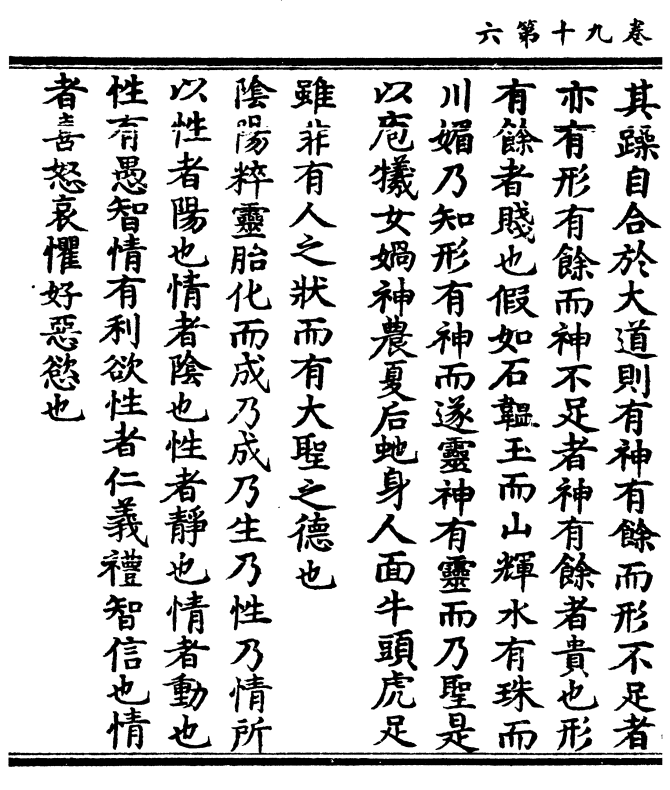 卷九十第六
其躁自合於大道則有神有餘而形不足者
亦有形有餘而神不足者神有餘者貴也形
有餘者賤也假如石韞玉而山輝水有珠而
川媚乃知形有神而遂靈神有靈而乃聖是
以庖犧女媧神農夏后虵身人面牛頭虎足
雖非有人之狀而有大聖之德也
陰陽粹靈胎化而成乃成乃生乃性乃情所
以性者陽也情者陰也性者靜也情者動也
性有愚智情有利欲性者仁義禮智信也情
者喜怒哀懼好惡慾也